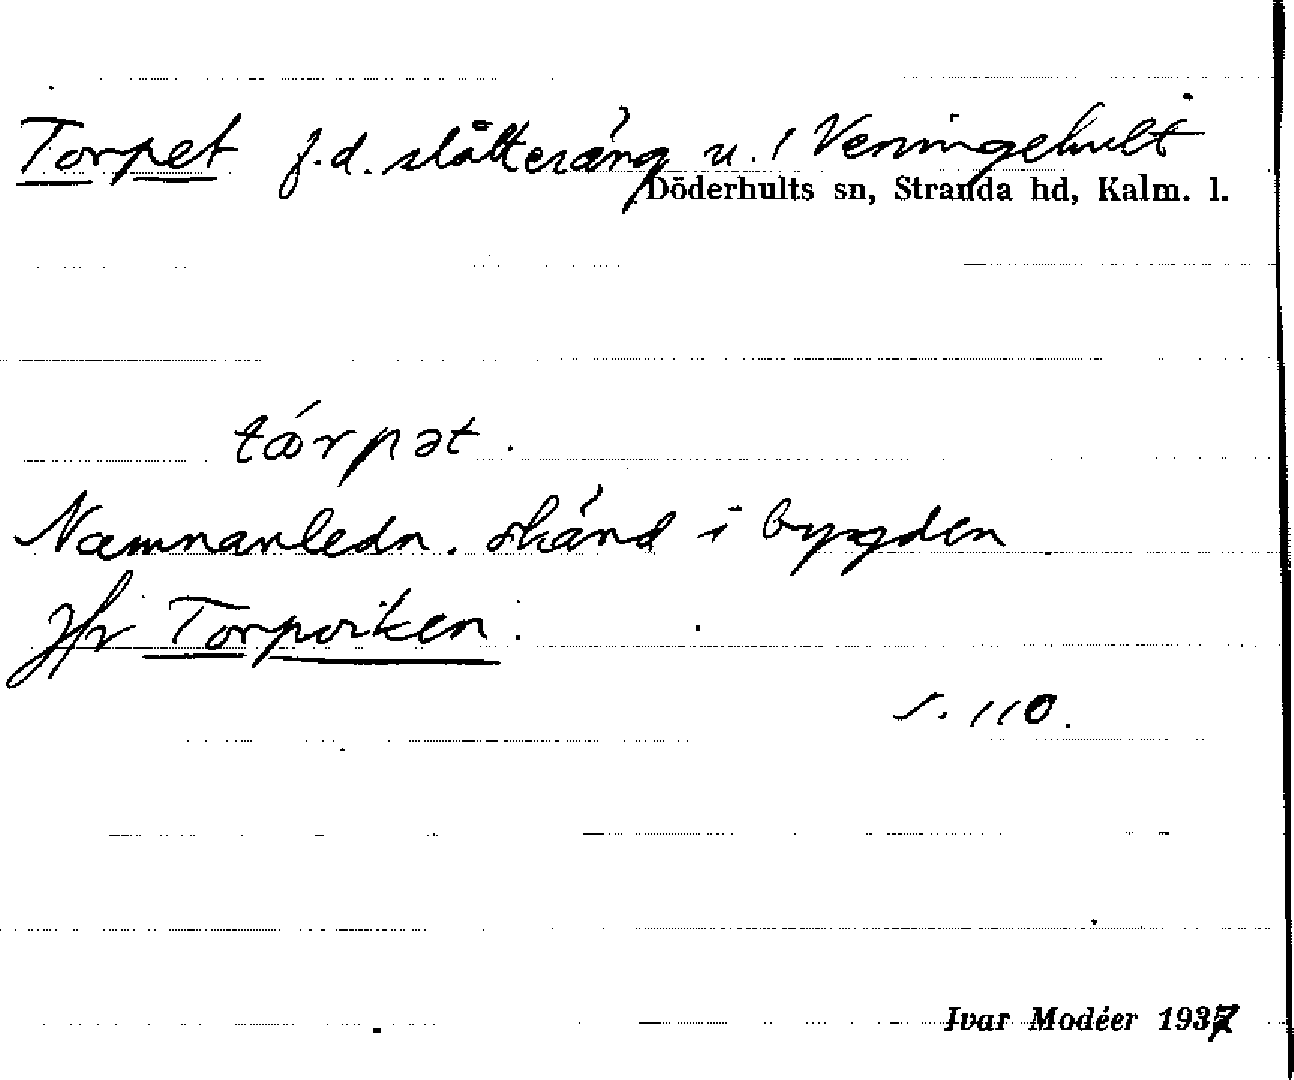 Torpet f.d. slåtteräng u. Veningehult
Döderhults sn, Stranda hd, Kalm. l.
tǿrpət.
Namnanledn. okänd i bygden
Jfr Torpviken.
s. 110.
Ivar Modéer 1937